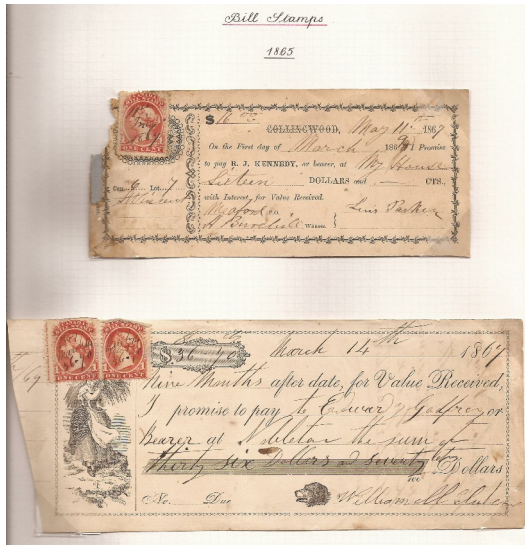 Bill Stamps
1865
$16
ONE CENT
COLLINGWOOD, May 11th 1867
On the First day of March 186 I Promise
to pay R. J. KENNEDY, or bearer, at My House
Sixteen DOLLARS and — CTS.,
Con. Lot 7
with Interest, for Value Received.
St Vincent
Meaford P.O.
Levis Parker
Witness
ONE CENT
ONE CENT
$36 70 March 14th 1867
Nine Months after date, for Value Received,
I promise to pay to Edward Godfrey or
Bearer at Nobleton the sum of
thirty six Dollars and seventy Dollars
100
No. Due
William